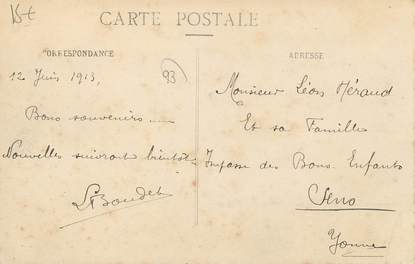 CARTE POSTALE
CORRESPONDANCE
ADRESSE
12 Juin 1913,
93
Bons souvenirs
Nouvelles suivront bientôt.
Boudet
Monsieur Léon Héraud
Et sa Famille
Impasse des Bons Enfants
Sens
Yonne